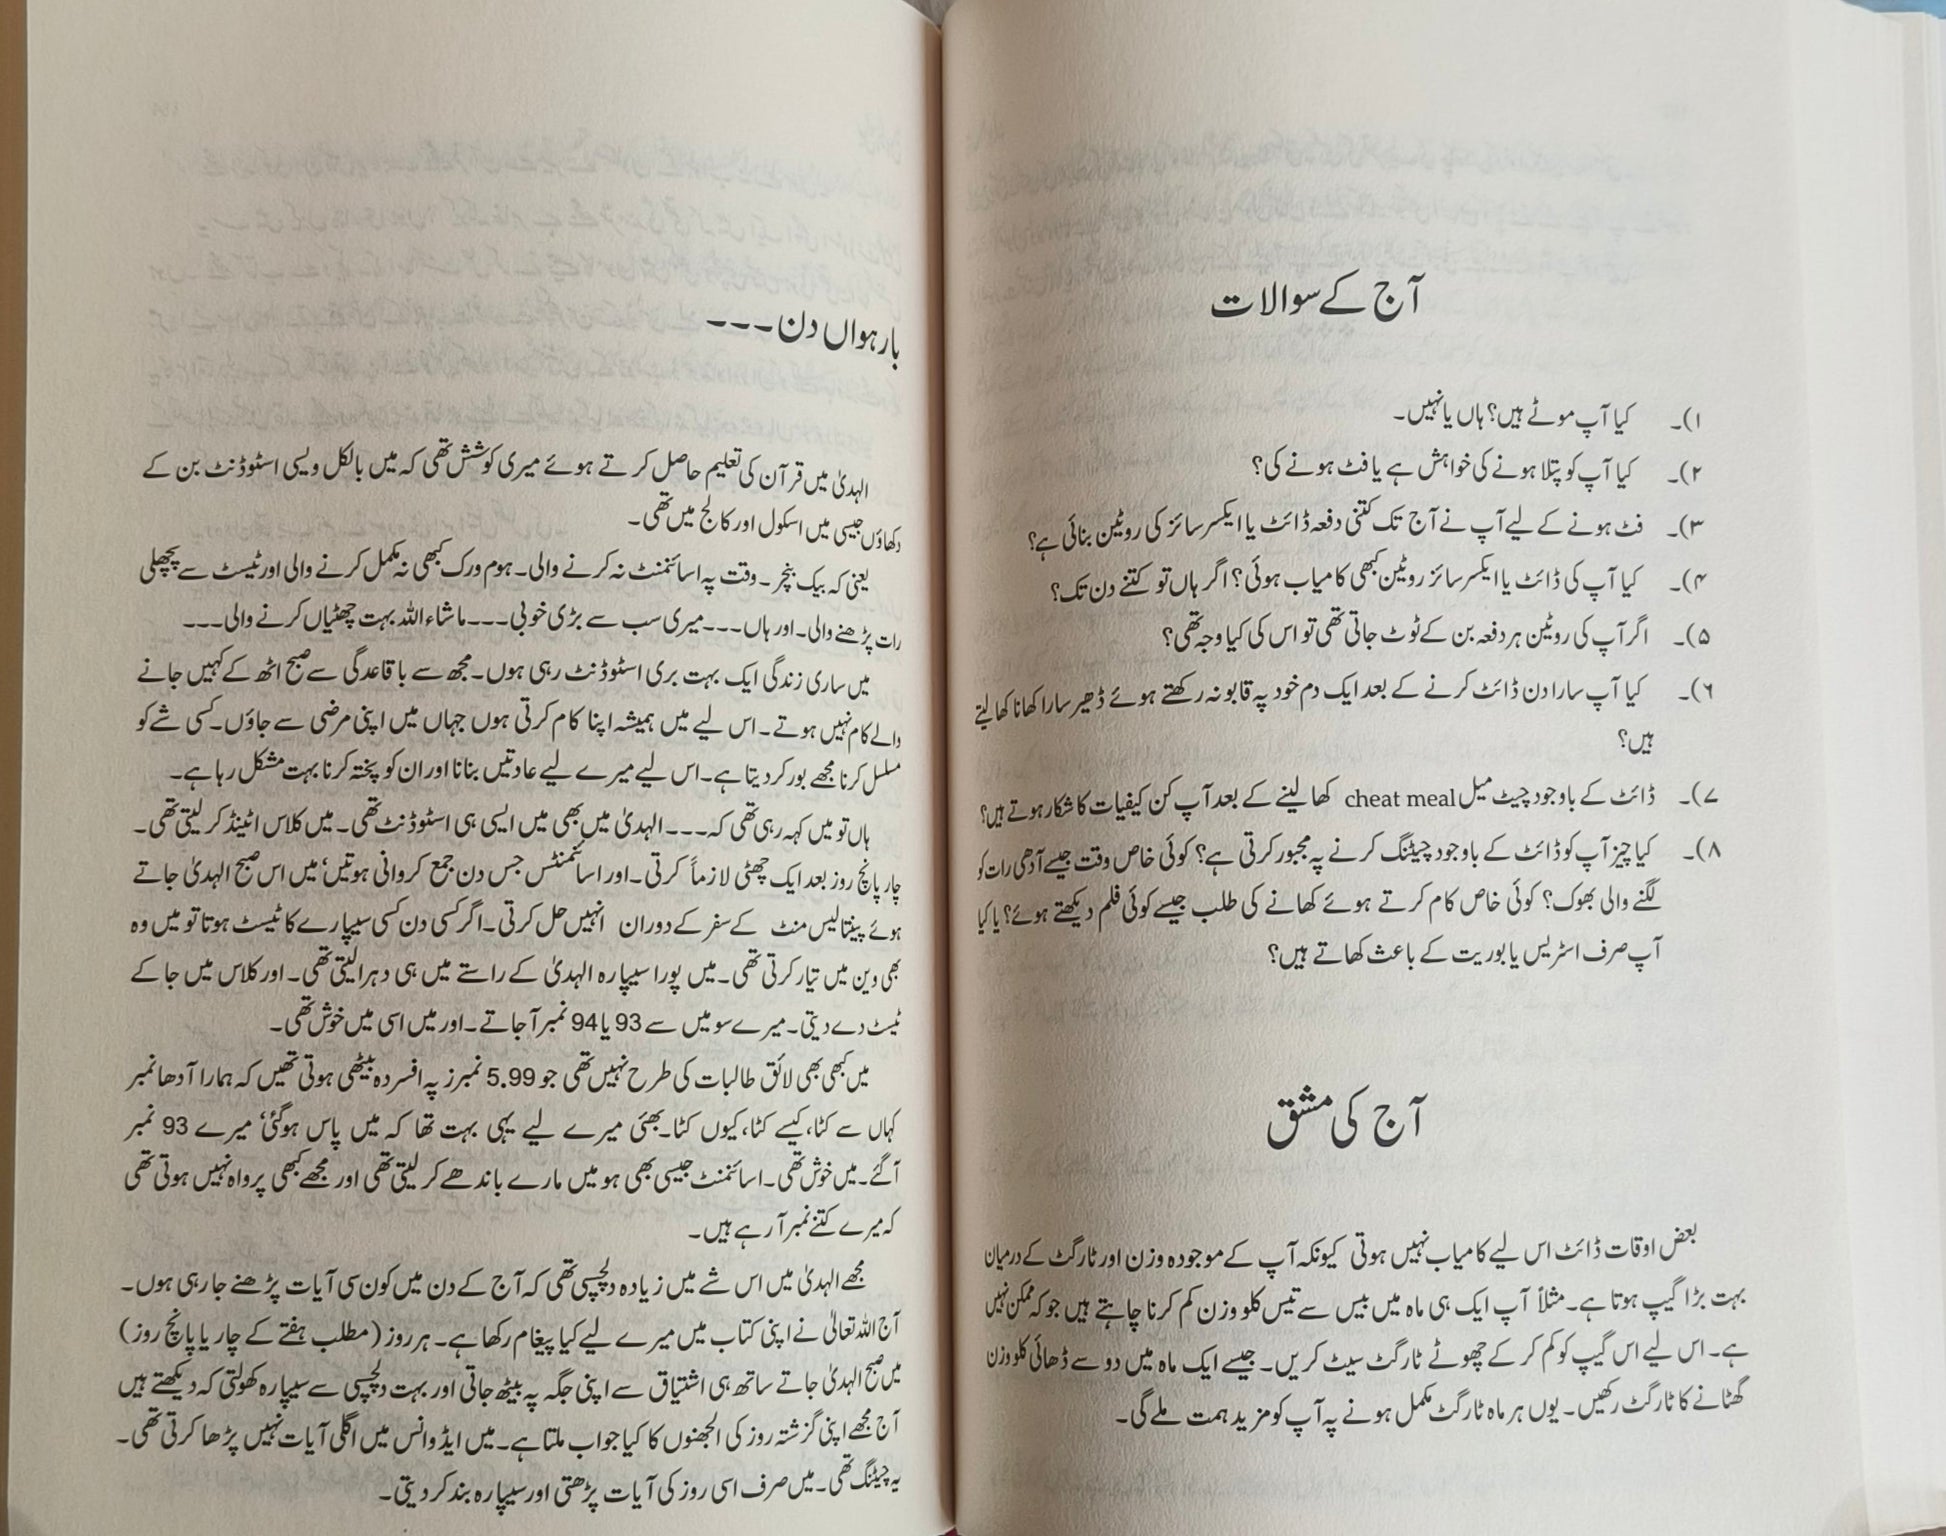 آج کے سوالات
۱)۔ کیا آپ موٹے ہیں؟ ہاں یا نہیں۔
۲)۔ کیا آپ کو پتلا ہونے کی خواہش ہے یا فٹ ہونے کی؟
۳)۔ فٹ ہونے کے لیے آپ نے آج تک کتنی دفعہ ڈائٹ یا ایکسرسائز کی روٹین بنائی ہے؟
۴)۔ کیا آپ کی ڈائٹ یا ایکسرسائز روٹین کبھی کامیاب ہوئی؟ اگر ہاں تو کتنے دن تک؟
۵)۔ اگر آپ کی روٹین ہر دفعہ بن کے ٹوٹ جاتی تھی تو اس کی کیا وجہ تھی؟
۶)۔ کیا آپ سارا دن ڈائٹ کرنے کے بعد ایک دم خود پہ قابو نہ رکھتے ہوئے ڈھیر سارا کھانا کھا لیتے
ہیں؟
۷)۔ ڈائٹ کے باوجود چیٹ میل cheat meal کھا لینے کے بعد آپ کن کیفیات کا شکار ہوتے ہیں؟
۸)۔ کیا چیز آپ کو ڈائٹ کے باوجود چیٹنگ کرنے پہ مجبور کرتی ہے؟ کوئی خاص وقت جیسے آدھی رات کو
لگنے والی بھوک؟ کوئی خاص کام کرتے ہوئے کھانے کی طلب جیسے کوئی فلم دیکھتے ہوئے؟ یا کیا
آپ صرف اسٹریس یا بوریت کے باعث کھاتے ہیں؟
آج کی مشق
بعض اوقات ڈائٹ اس لیے کامیاب نہیں ہوتی کیونکہ آپ کے موجودہ وزن اور ٹارگٹ کے درمیان
بہت بڑا گیپ ہوتا ہے۔ مثلاً آپ ایک ہی ماہ میں بیس سے تیس کلو وزن کم کرنا چاہتے ہیں جو کہ ممکن نہیں
ہے۔ اس لیے اس گیپ کو کم کر کے چھوٹے ٹارگٹ سیٹ کریں۔ جیسے ایک ماہ میں دو سے ڈھائی کلو وزن
گھٹانے کا ٹارگٹ رکھیں۔ یوں ہر ماہ ٹارگٹ مکمل ہونے پہ آپ کو مزید ہمت ملے گی۔
بارہواں دن ۔۔۔
الہدیٰ میں قرآن کی تعلیم حاصل کرتے ہوئے میری کوشش تھی کہ میں بالکل ویسی اسٹوڈنٹ بن کے
دکھاؤں جیسی میں اسکول اور کالج میں تھی۔
یعنی کہ بیک بنچر۔ وقت پہ اسائنمنٹ نہ کرنے والی۔ ہوم ورک کبھی نہ مکمل کرنے والی اور ٹیسٹ سے پچھلی
رات پڑھنے والی۔ اور ہاں۔۔۔ میری سب سے بڑی خوبی۔۔۔ ماشاءاللہ بہت چھٹیاں کرنے والی۔۔۔
میں ساری زندگی ایک بہت بری اسٹوڈنٹ رہی ہوں۔ مجھ سے باقاعدگی سے صبح اٹھ کے کہیں جانے
والے کام نہیں ہوتے۔ اس لیے میں ہمیشہ اپنا کام کرتی ہوں جہاں میں اپنی مرضی سے جاؤں۔ کسی شے کو
مسلسل کرنا مجھے بور کر دیتا ہے۔ اس لیے میرے لیے عادتیں بنانا اور ان کو پختہ کرنا بہت مشکل رہا ہے۔
ہاں تو میں کہہ رہی تھی کہ۔۔۔ الہدیٰ میں بھی میں ایسی ہی اسٹوڈنٹ تھی۔ میں کلاس اٹینڈ کر لیتی تھی۔
چار پانچ روز بعد ایک چھٹی لازماً کرتی۔ اور اسائنمنٹس جس دن جمع کروانی ہوتیں' میں اس صبح الہدیٰ جاتے
ہوئے پینتالیس منٹ کے سفر کے دوران انہیں حل کرتی۔ اگر کسی دن کسی سیپارے کا ٹیسٹ ہوتا تو میں وہ
بھی وین میں تیار کرتی تھی۔ میں پورا سیپارہ الہدیٰ کے راستے میں ہی دہرا لیتی تھی۔ اور کلاس میں جا کے
ٹیسٹ دے دیتی۔ میرے سو میں سے 93 یا 94 نمبر آ جاتے۔ اور میں اسی میں خوش تھی۔
میں کبھی بھی لائق طالبات کی طرح نہیں تھی جو 5.99 نمبرز پہ افسردہ بیٹھی ہوتی تھیں کہ ہمارا آدھا نمبر
کہاں سے کٹا، کیسے کٹا، کیوں کٹا۔ بھئی میرے لیے یہی بہت تھا کہ میں پاس ہو گئی' میرے 93 نمبر
آ گئے۔ میں خوش تھی۔ اسائنمنٹ جیسی بھی ہو میں مارے باندھے کر لیتی تھی اور مجھے کبھی پرواہ نہیں ہوتی تھی
کہ میرے کتنے نمبر آ رہے ہیں۔
مجھے الہدیٰ میں اس شے میں زیادہ دلچسپی تھی کہ آج کے دن میں کون سی آیات پڑھنے جا رہی ہوں۔
آج اللہ تعالیٰ نے اپنی کتاب میں میرے لیے کیا پیغام رکھا ہے۔ ہر روز (مطلب ہفتے کے چار یا پانچ روز)
میں صبح الہدیٰ جاتے ساتھ ہی اشتیاق سے اپنی جگہ پہ بیٹھ جاتی اور بہت دلچسپی سے سیپارہ کھولتی کہ دیکھتے ہیں
آج مجھے اپنی گزشتہ روز کی الجھنوں کا کیا جواب ملتا ہے۔ میں ایڈوانس میں اگلی آیات نہیں پڑھا کرتی تھی۔
یہ چیٹنگ تھی۔ میں صرف اسی روز کی آیات پڑھتی اور سیپارہ بند کر دیتی۔